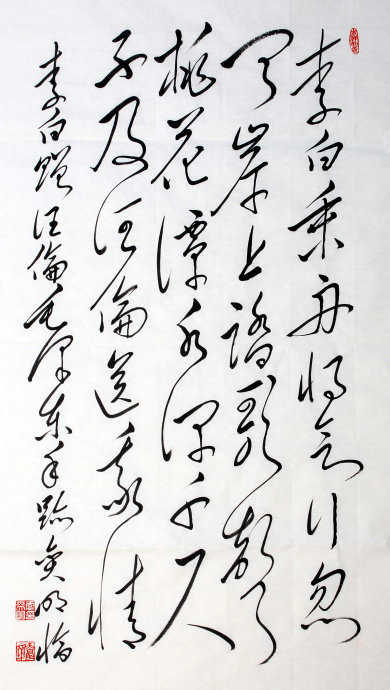 李白乘舟将欲行忽
闻岸上踏歌声
桃花潭水深千尺
不及汪倫送我情
李白赠汪倫毛泽东手跡